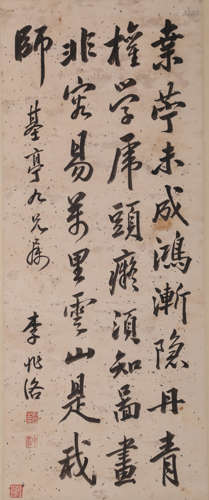 桒苧未成鴻漸隐丹青
權学虎頭癡須知啚畫
非容易萬里雲山是我
師
基亭九兄屬
李兆洛